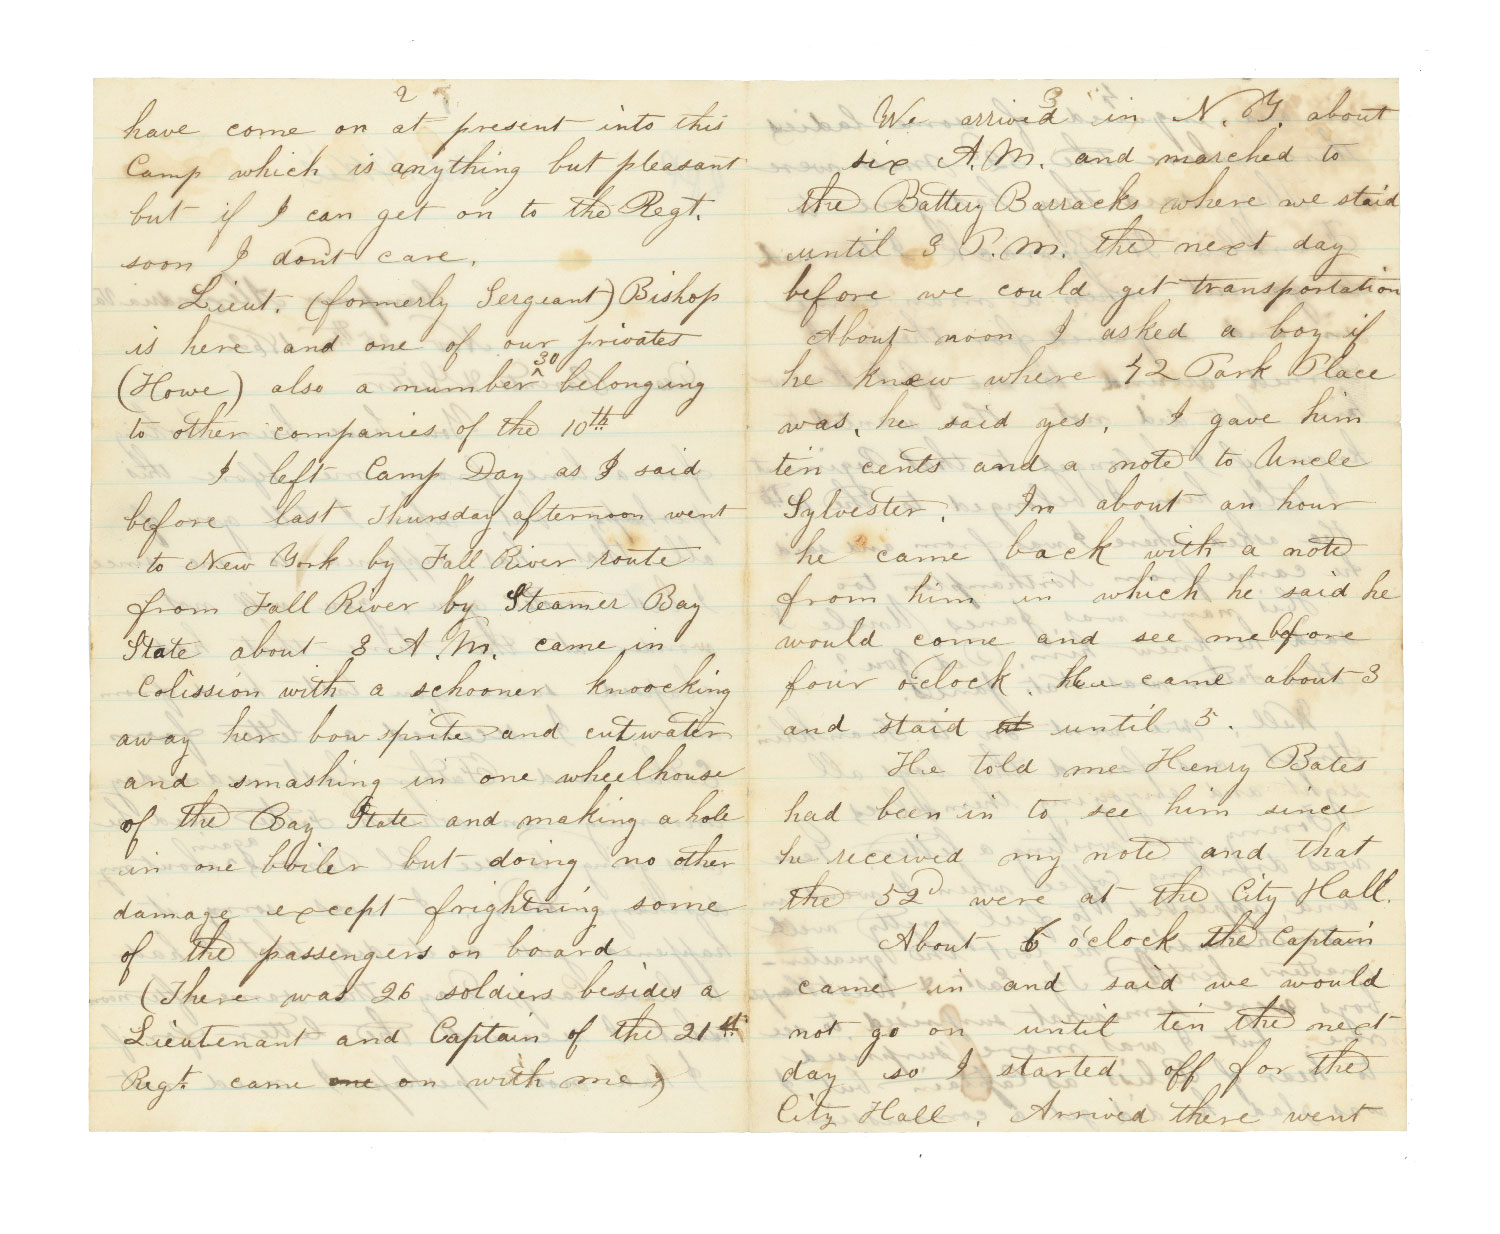 2
have come on at present into this
Camp which is anything but pleasant
but if I can get on to the Regt.
soon I don't care.
Lieut. (formerly Sergeant) Bishop
is here and one of our privates
30
(Howe) also a number ^ belonging
to other companies of the 10th
I left Camp Day as I said
before last Thursday afternoon went
to New York by Fall River route
from Fall River by Steamer Bay
State about 3 A.M. came in
Colission with a schooner knoocking
away her bow sprite and cutwater
and smashing in one wheelhouse
of the Bay State and making a hole
in one boiler but doing no other
damage except frightning some
of the passengers on board
(There was 26 soldiers besides a
Lieutenant and Captain of the 21st
Regt. came one on with me)
3
We arrived in N.Y. about
six A.M. and marched to
the Battery Barracks where we staid
until 3 P.M. the next day
before we could get transportation
About noon I asked a boy if
he knew where 52 Park Place
was, he said yes, I gave him
ten cents and a note to Uncle
Sylvester. In about an hour
he came back with a note
from him in which he said he
would come and see me before
four o'clock. He came about 3
and staid at until 5.
He told me Henry Bates
had been in to see him since
he received my note and that
the 52d were at the City Hall.
About 6 o'clock the Captain
came in and said we would
not go on until ten the next
day so I started off for the
City Hall. Arrived there went